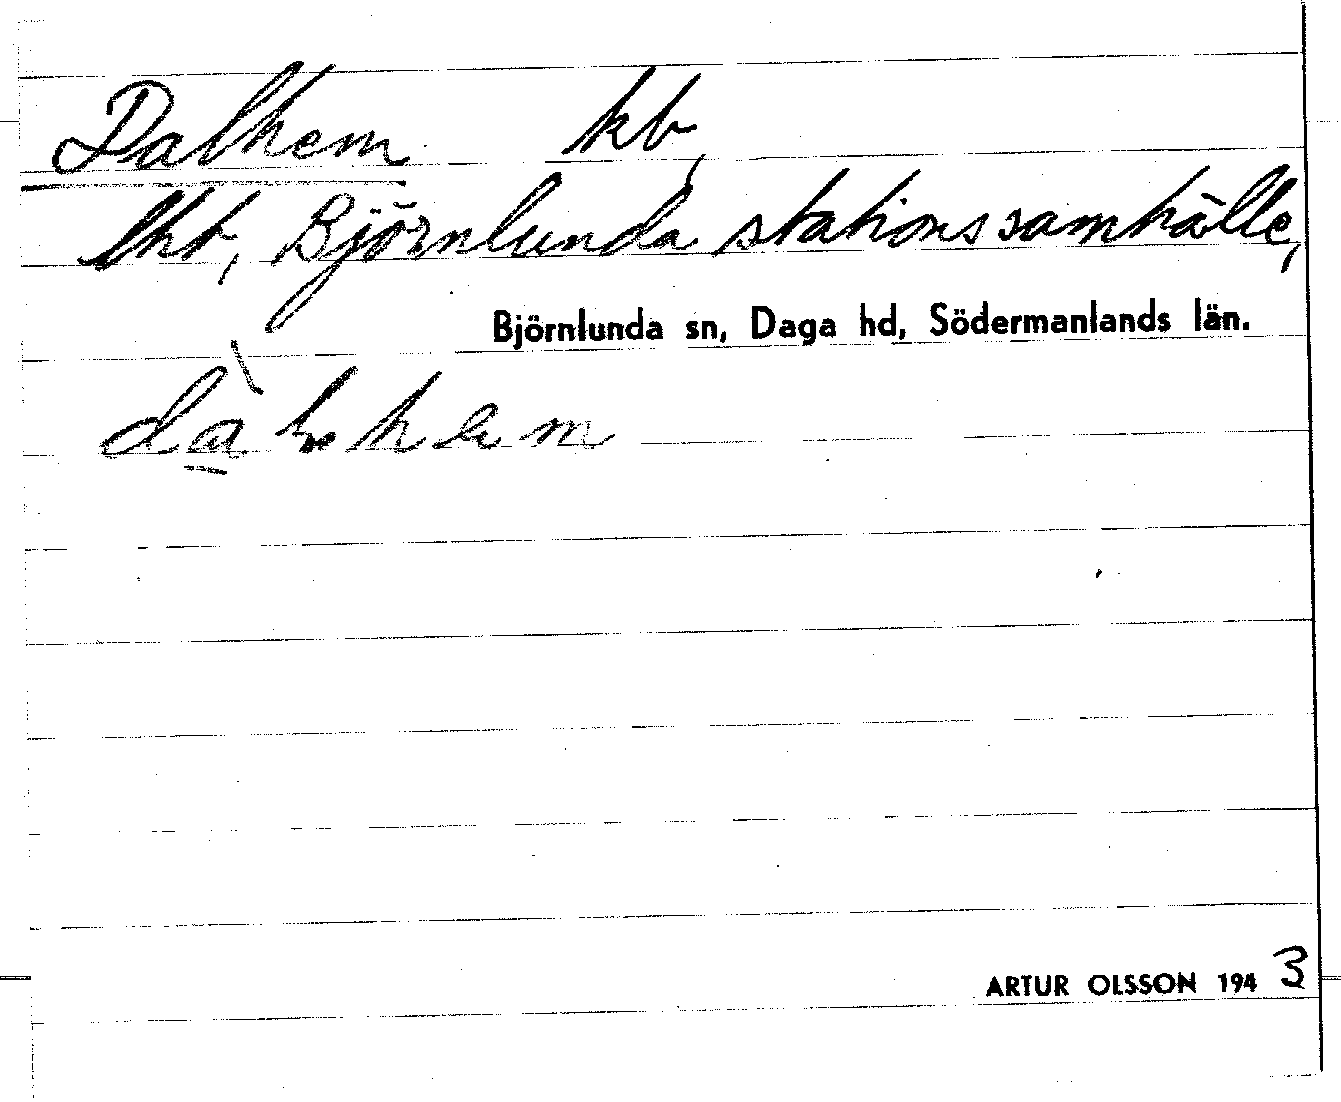 Dalhem kb
lht, Björnlunda stationssamhälle,
Björnlunda sn, Daga hd, Södermanlands län.
ARTUR OLSSON 1943